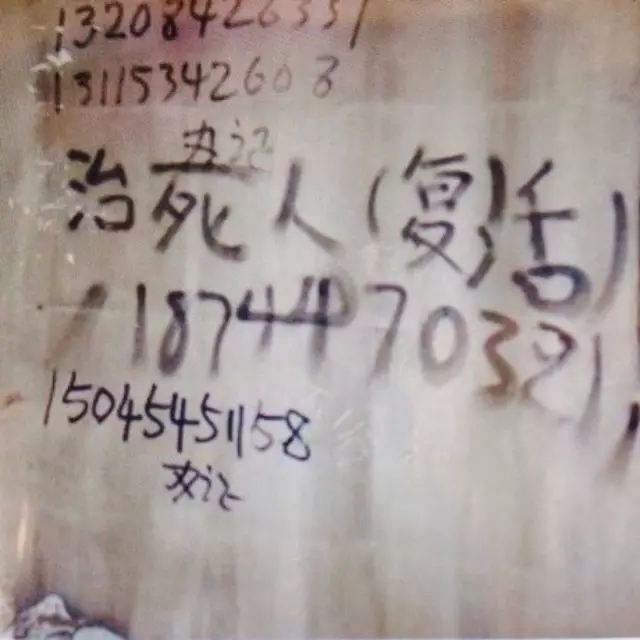 13208426331
13115342608
办证
治死人(复活)
18744470321
15045451158
办证